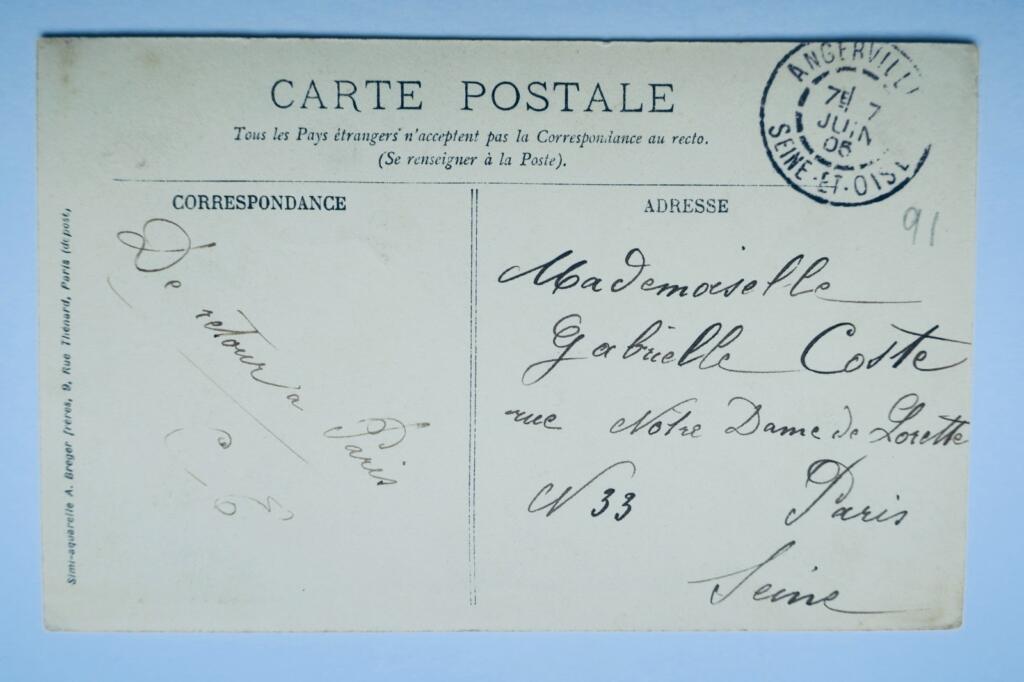 CARTE POSTALE
Tous les Pays étrangers n'acceptent pas la Correspondance au recto.
(Se renseigner à la Poste).
ANGERVILL
7 JUIN
SEINE-ET-OISE
CORRESPONDANCE
De retour à
Paris
ADRESSE
91
Mademoiselle
Gabrielle Coste
rue Notre Dame de Lorette
N 33 Paris
Seine
Simi-aquarelle A. Breger frères, 9, Rue Thénard, Paris (dépost,